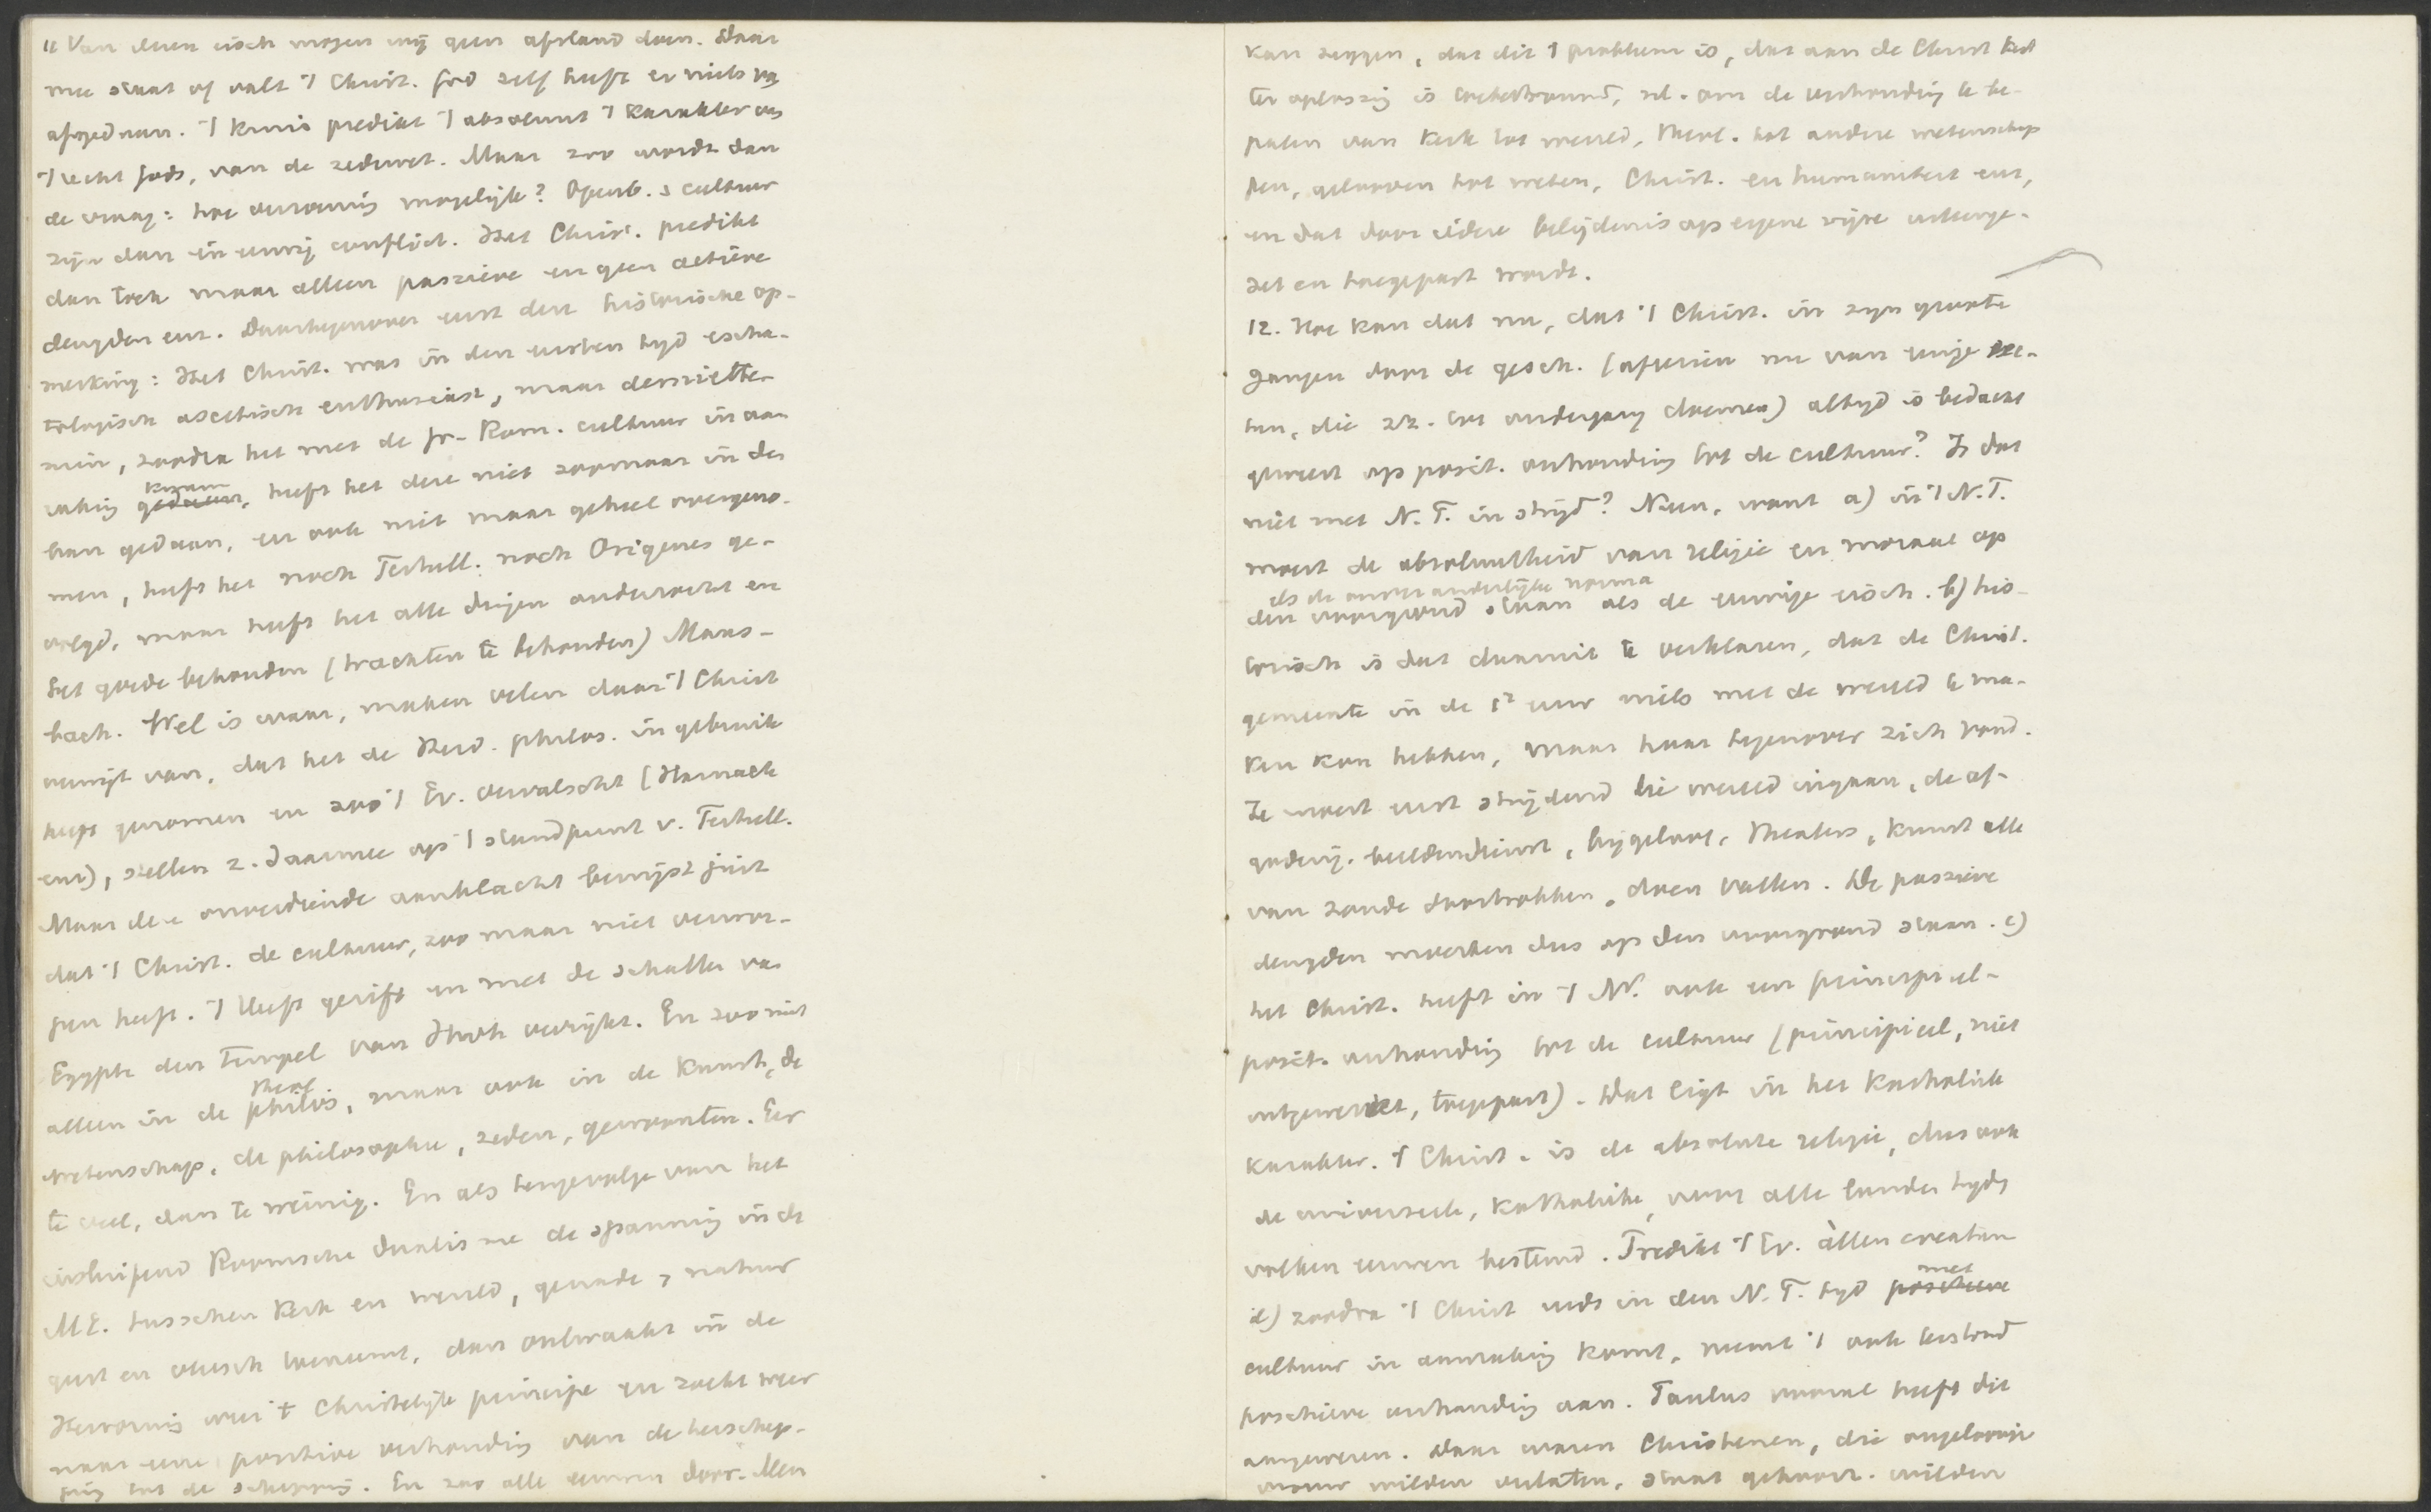 11 Van dezen eisch mogen wij geen afstand doen. Daar
mee staat of valt 't Christ. God zelf heeft er niets van
afgedaan. 't Kruis predikt 't absoluut 't karakter van
't recht Gods, van de zedewet. Maar zoo wordt dan
de vraag: hoe verzoening mogelijk? Openb. & cultuur
zijn dan in eeuwig conflict. Het Christ. predikt
dan toch maar alleen passieve en geen actieve
deugden enz. Daartegenover eerst deze historische op-
merking: Het Christ. was in den eersten tijd escha-
tologisch ascetisch enthusiast, maar desniette-
min, zoodra het met de Gr-Rom. cultuur in aan
raking kwam gedaan, heeft het deze niet zoomaar in den
ban gedaan, en ook niet maar geheel overgeno-
men, heeft het noch Tertull. noch Origenes ge-
volgd, maar heeft het alle dingen onderzocht en
het goede behouden (trachten te behouden) Maus-
bach. Wel is waar, maken velen daar 't Christ
verwijt van, dat het de Heid. philos. in gebruik
heeft genomen en zoo 't Ev. vervalscht (Harnack
enz), stellen z. daarmee op 't standpunt v. Tertull.
Maar deze onverdiende aanklacht bewijst juist
dat 't Christ. de cultuur, zoo maar niet verwor-
pen heeft. 't Heeft gezift en met de schatten van
Egypte den tempel van Jhvh verrijkt. En zoo niet
alleen in de theol philos, maar ook in de kunst, de
wetenschap, de philosophie, zeden, gewoonten. Eer
te veel, dan te weinig. En als tengevolge van het
insluipend Roomsche dualisme de spanning in de
M.E. tusschen kerk en wereld, genade & natuur
geest en vleesch toeneemt, dan ontwaakt in de
Hervorming weer 't Christelijk principe en zoekt weer
naar eene positive verhouding van de herschep-
ping tot de schepping. En zoo alle eeuwen door. Men
kan zeggen, dat dit 't probleem is, dat aan de Christ kerk
ter oplossing is toebetrouwd, nl. om de verhouding te be-
palen van kerk tot wereld, theol. tot andere wetenschap
pen, gelooven tot weten, Christ. en humaniteit enz,
en dat door iedere belijdenis op eigene wijze uiteenge-
zet en toegepast wordt.
12. Hoe kan dat nu, dat 't Christ. in zijn groote
gangen door de gesch. (afgezien nu van eenige sec-
ten, die zich tot ondergang doemen) altijd is bedacht
geweest op posit. verhouding tot de cultuur? Is dat
niet met N.T. in strijd? Neen, want a) in 't N.T.
moest de absoluutheid van religie en moraal op
als de onveranderlijke norma
den voorgrond staan als de eenige eisch. b) his-
torisch is dat daaruit te verklaren, dat de Christ.
gemeente in de 1e eeuw niets met de wereld te ma-
ken kon hebben, maar haar tegenover zich vond.
Ze moest eerst strijdend die wereld ingaan, de af-
goderij. beeldendienst, bijgeloof, theaters, kunst alle
van zonde doortrokken, doen vallen. De passieve
deugden moesten dus op den voorgrond staan. c)
het Christ. heeft in 't NT. ook een principieel-
posit. verhouding tot de cultuur (principieel, niet
uitgewerkt, toegepast). Dat ligt in het Katholiek
karakter. 't Christ. is de absolute religie, dus ook
de universeele, Katholieke, voor alle landen tijden
volken eeuwen bestemd. Predikt 't Ev. àllen creaturen
d) zoodra 't Christ reeds in den N.T. tijd met positieve
cultuur in aanraking komt, neemt 't ook terstond
positieve verhouding aan. Paulus vooral heeft dit
aangewezen. Daar waren Christenen, die ongeloovige
vrouw wilden verlaten, staat gehoorz. wilden